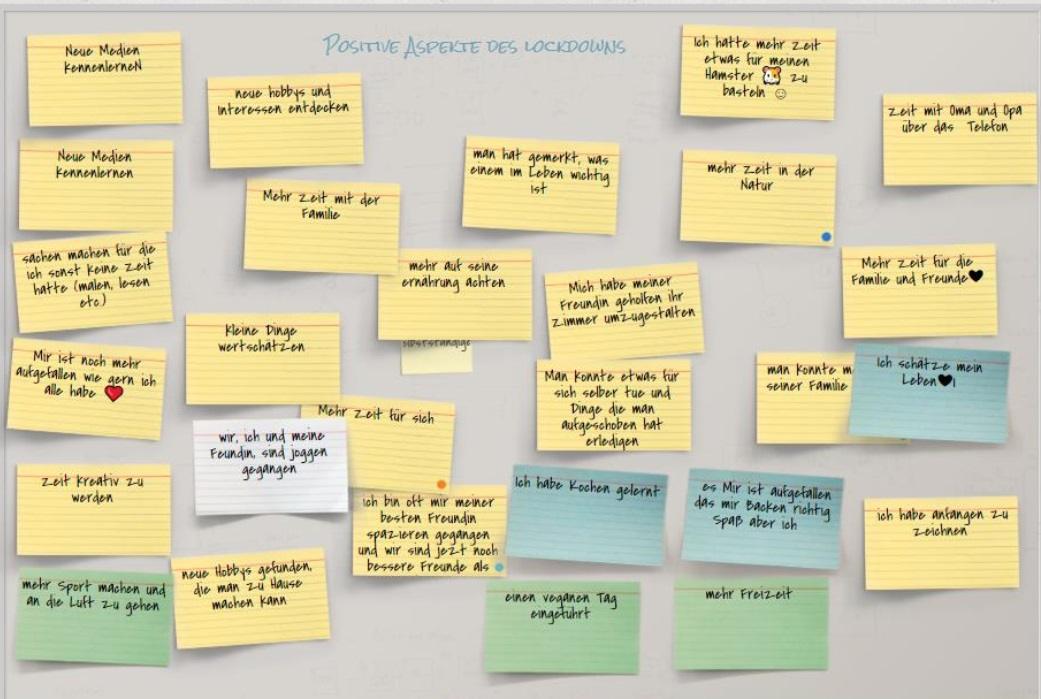 Positive Aspekte des lockdowns
Neue Medien
KennenlerneN
neue hobbys und
Interessen entdecken
Ich hatte mehr Zeit
etwas für meinen
Hamster 🐹 zu
basteln ☺
Zeit mit Oma und Opa
über das Telefon
Neue Medien
Kennenlernen
Mehr Zeit mit der
Familie
man hat gemerkt, was
einem im Leben wichtig
ist
mehr Zeit in der
Natur
sachen machen für die
ich sonst keine Zeit
hatte (malen, lesen
etc.)
mehr auf seine
ernährung achten
Mich habe meiner
Freundin geholfen ihr
Zimmer umzugestalten
Mehr Zeit für die
Familie und Freunde🖤
Kleine Dinge
wertschätzen
selbstständige
Mir ist noch mehr
aufgefallen wie gern ich
alle habe ❤️
Man Konnte etwas für
sich selber tue und
Dinge die man
aufgeschoben hat
erledigen
man Konnte m
seiner Familie
Ich schätze mein
Leben🖤!
Mehr Zeit für sich
wir, ich und meine
Feundin, sind joggen
gegangen
Zeit Kreativ zu
werden
ich bin oft mir meiner
besten Freundin
spazieren gegangen
und wir sind jezt noch
bessere Freunde als
Ich habe Kochen gelernt
es Mir ist aufgefallen
das mir Backen richtig
Spaß aber ich
ich habe anfangen zu
zeichnen
mehr Sport machen und
an die Luft zu gehen
neue Hobbys gefunden,
die man zu Hause
machen Kann
einen veganen Tag
eingeführt
mehr Freizeit